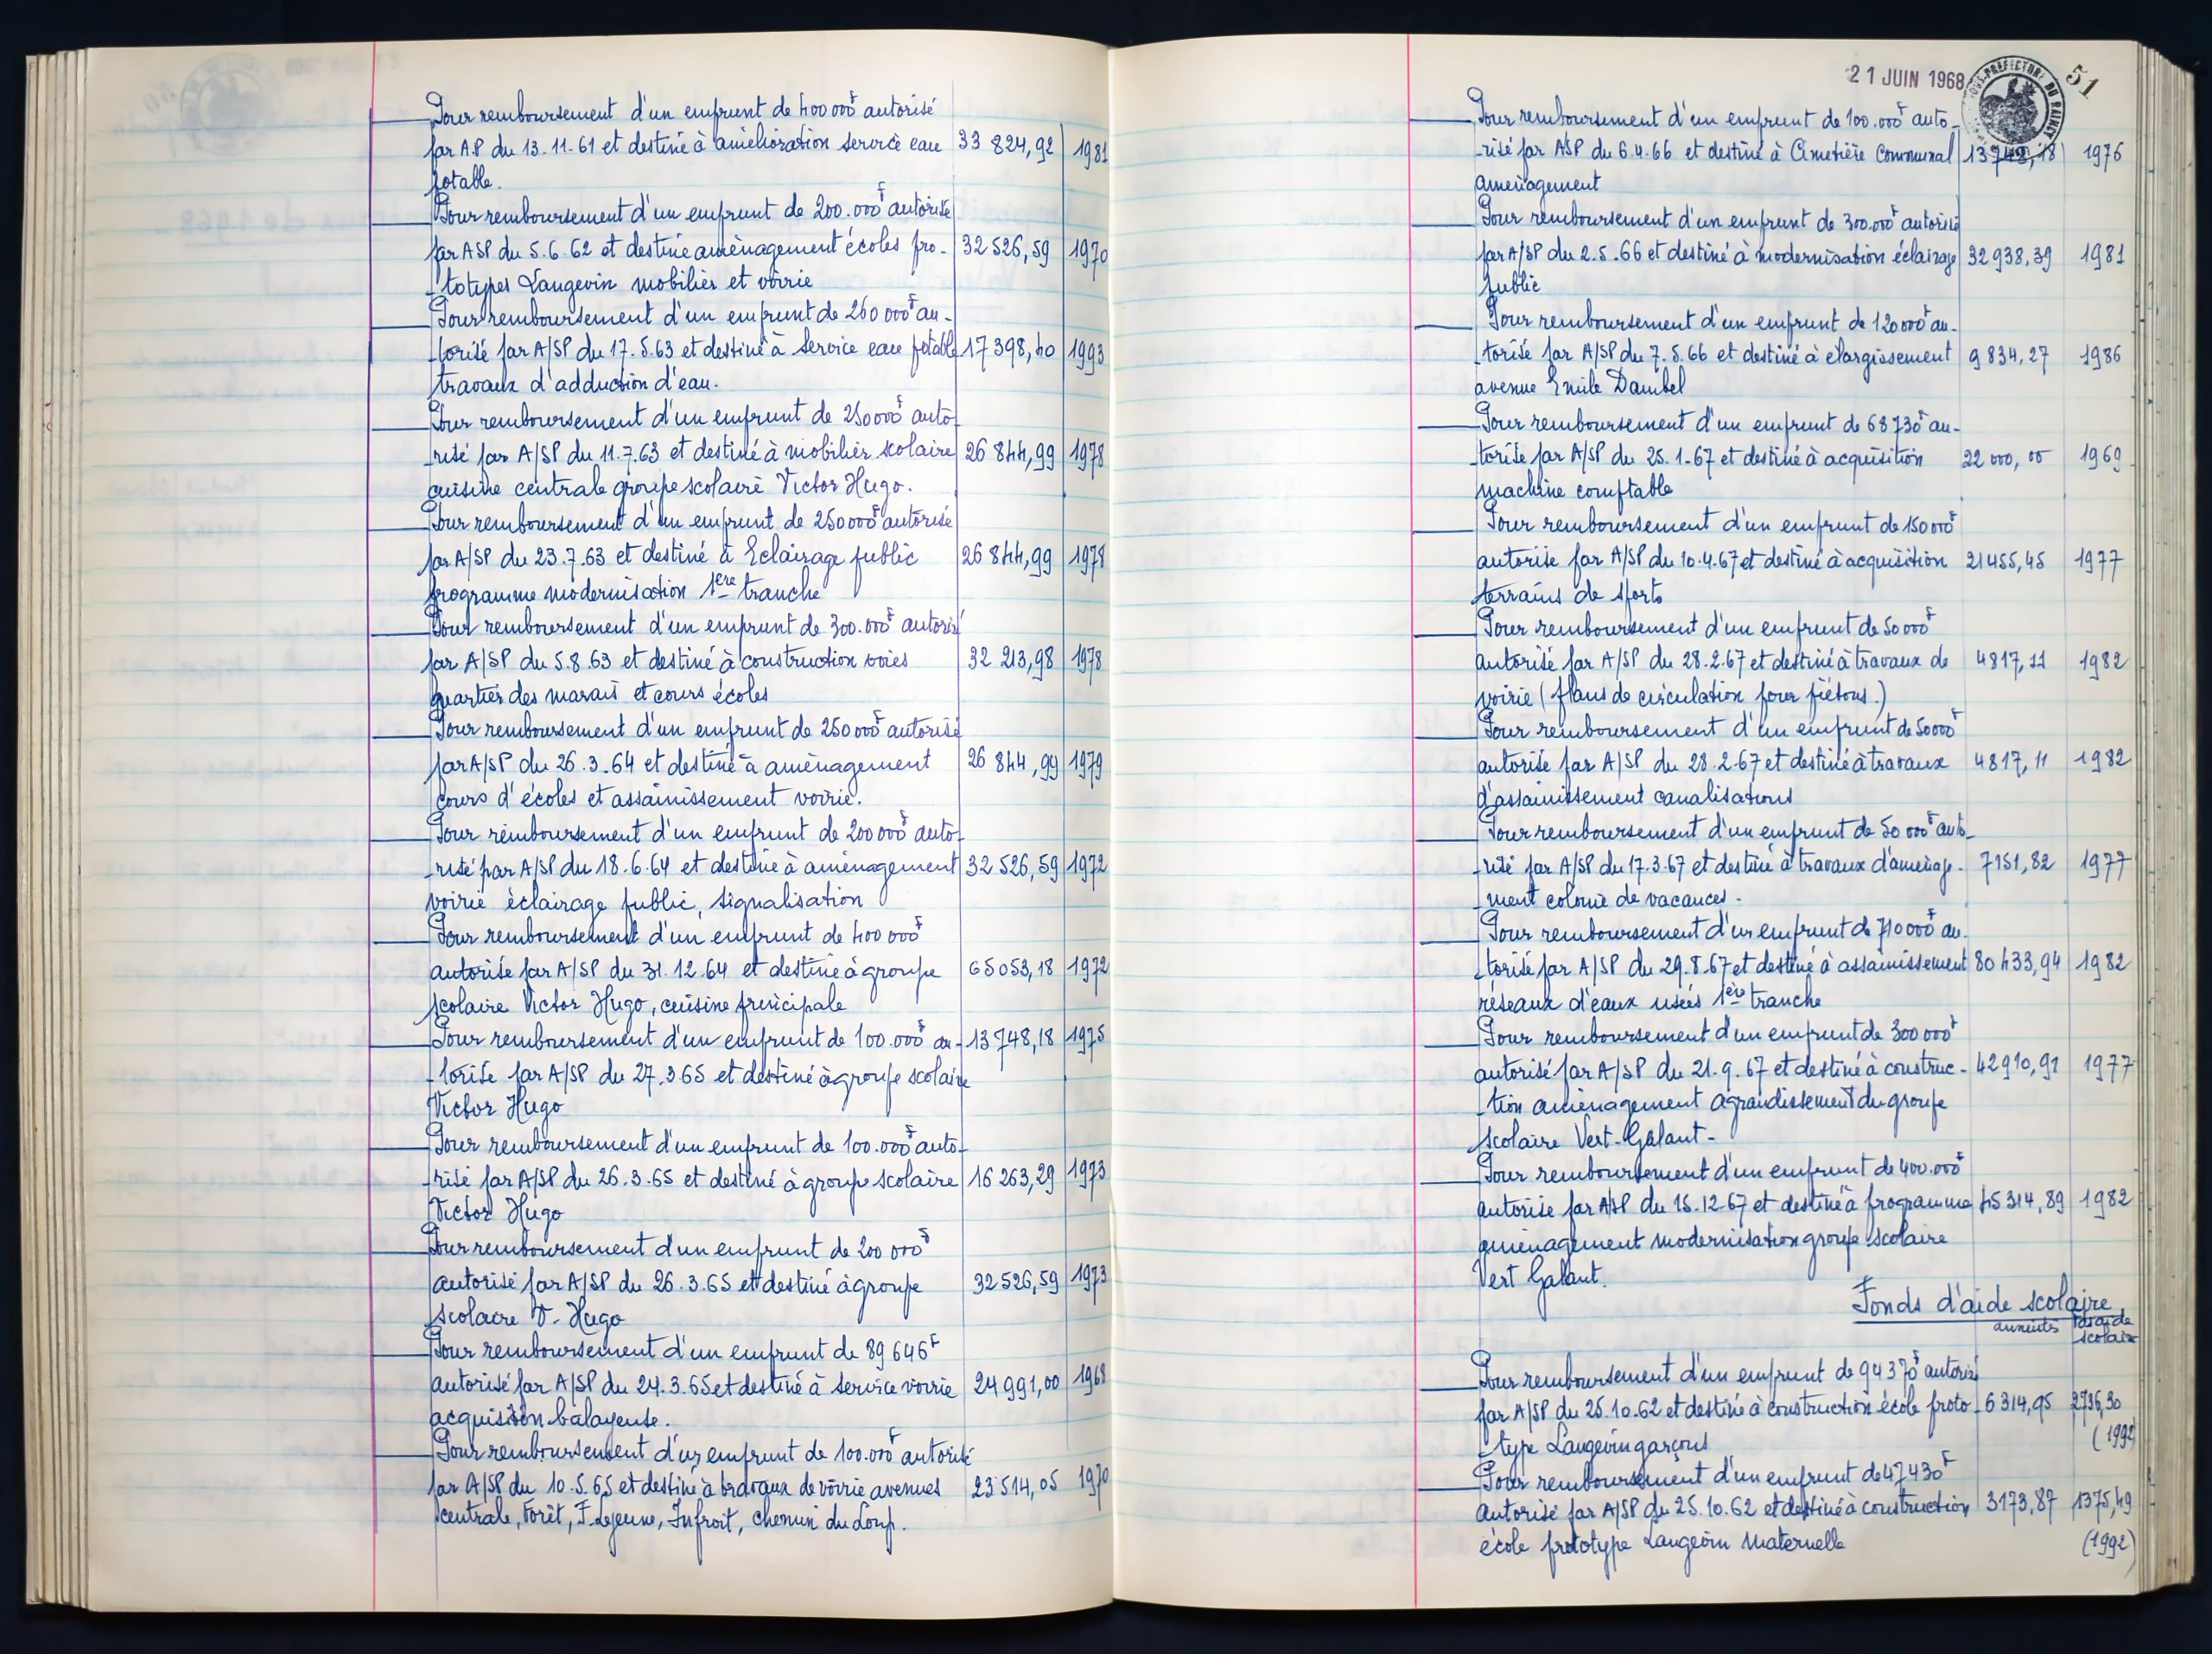 Pour remboursement d'un emprunt de 400 000F autorisé
par A.P du 13.11.61 et destiné à amélioration service eau 33 824,92 1981
potable.
Pour remboursement d'un emprunt de 200.000F autorisé
par ASP du 5.6.62 et destiné aménagement écoles pro- 32 526,59 1970
-totypes Langevin mobilier et voirie
Pour remboursement d'un emprunt de 260 000F au-
-torisé par A/SP du 17.5.63 et destiné à service eau potable 17 398,40 1993
travaux d'adduction d'eau.
Pour remboursement d'un emprunt de 250000F auto-
-risé par A/SP du 11.7.63 et destiné à mobilier scolaire 26 844,99 1978
cuisine centrale groupe scolaire Victor Hugo.
Pour remboursement d'un emprunt de 250000F autorisé
par A/SP du 23.7.63 et destiné à Eclairage public 26 844,99 1978
programme modernisation 1ère tranche
Pour remboursement d'un emprunt de 300.000F autorisé
par A/SP du 5.8.63 et destiné à construction voies 32 213,98 1978
quartier des marais et cours écoles
Pour remboursement d'un emprunt de 250000F autorisé
par A/SP du 26.3.64 et destiné à aménagement 26 844,99 1979
cours d'écoles et assainissement voirie.
Pour remboursement d'un emprunt de 200000F auto-
-risé par A/SP du 18.6.64 et destiné à aménagement 32 526,59 1972
voirie éclairage public, signalisation
Pour remboursement d'un emprunt de 400 000F
autorisé par A/SP du 31.12.64 et destiné à groupe 65053,18 1972
scolaire Victor Hugo, cuisine principale
Pour remboursement d'un emprunt de 100.000F au- 13 748,18 1975
-torisé par A/SP du 27.3.65 et destiné à groupe scolaire
Victor Hugo
Pour remboursement d'un emprunt de 100.000F auto-
-risé par A/SP du 26.3.65 et destiné à groupe scolaire 16 263,29 1973
Victor Hugo
Pour remboursement d'un emprunt de 200 000F
autorisé par A/SP du 26.3.65 et destiné à groupe 32 526,59 1973
scolaire V. Hugo
Pour remboursement d'un emprunt de 89 646F
autorisé par A/SP du 24.3.65 et destiné à service voirie 24 991,00 1968
acquisition balayeuse.
Pour remboursement d'un emprunt de 100.000F autorisé
par A/SP du 10.5.65 et destiné à travaux de voirie avenues 23 514,05 1970
centrale, Forêt, F. Lejeune, Infroit, chemin du Loup.
21 JUIN 1968 SOUS-PRÉFECTURE DU RAINCY 51
Pour remboursement d'un emprunt de 100.000F auto-
-risé par ASP du 6.4.66 et destiné à Cimetière Communal 13748,18 1976
aménagement
Pour remboursement d'un emprunt de 300.000F autorisé
par A/SP du 2.5.66 et destiné à modernisation éclairage 32 938,39 1981
public
Pour remboursement d'un emprunt de 120000F au-
-torisé par A/SP du 7.5.66 et destiné à élargissement 9 834,27 1986
avenue Emile Dambel
Pour remboursement d'un emprunt de 68 730F au-
-torisé par A/SP du 25.1.67 et destiné à acquisition 22 000,00 1969
machine comptable
Pour remboursement d'un emprunt de 150000F
autorisé par A/SP du 10.4.67 et destiné à acquisition 21455,45 1977
terrains de sports
Pour remboursement d'un emprunt de 50000F
autorisé par A/SP du 28.2.67 et destiné à travaux de 4817,11 1982
voirie (plans de circulation pour piétons.)
Pour remboursement d'un emprunt de 50000F
autorisé par A/SP du 28.2.67 et destiné à travaux 4817,11 1982
d'assainissement canalisations
Pour remboursement d'un emprunt de 50 000F auto-
-risé par A/SP du 17.3.67 et destiné à travaux d'aménage- 7151,82 1977
-ment colonie de vacances.
Pour remboursement d'un emprunt de 710000F au-
-torisé par A/SP du 29.8.67 et destiné à assainissement 80 433,94 1982
réseaux d'eaux usées 1ère tranche
Pour remboursement d'un emprunt de 300 000F
autorisé par A/SP du 21.9.67 et destiné à construc- 42910,91 1977
-tion aménagement agrandissement du groupe
scolaire Vert-Galant-
Pour remboursement d'un emprunt de 400.000F
autorisé par A/SP du 15.12.67 et destiné à programme 45 314,89 1982
aménagement modernisation groupe scolaire
Vert Galant.
Fonds d'aide scolaire
annuités part aide
scolaire
Pour remboursement d'un emprunt de 94 370F autorisé
par A/SP du 25.10.62 et destiné à construction école proto- 6 314,95 2736,30
-type Langevin garçons (1992)
Pour remboursement d'un emprunt de 47430F
autorisé par A/SP du 25.10.62 et destiné à construction 3173,87 1375,49
école prototype Langevin Maternelle (1992)